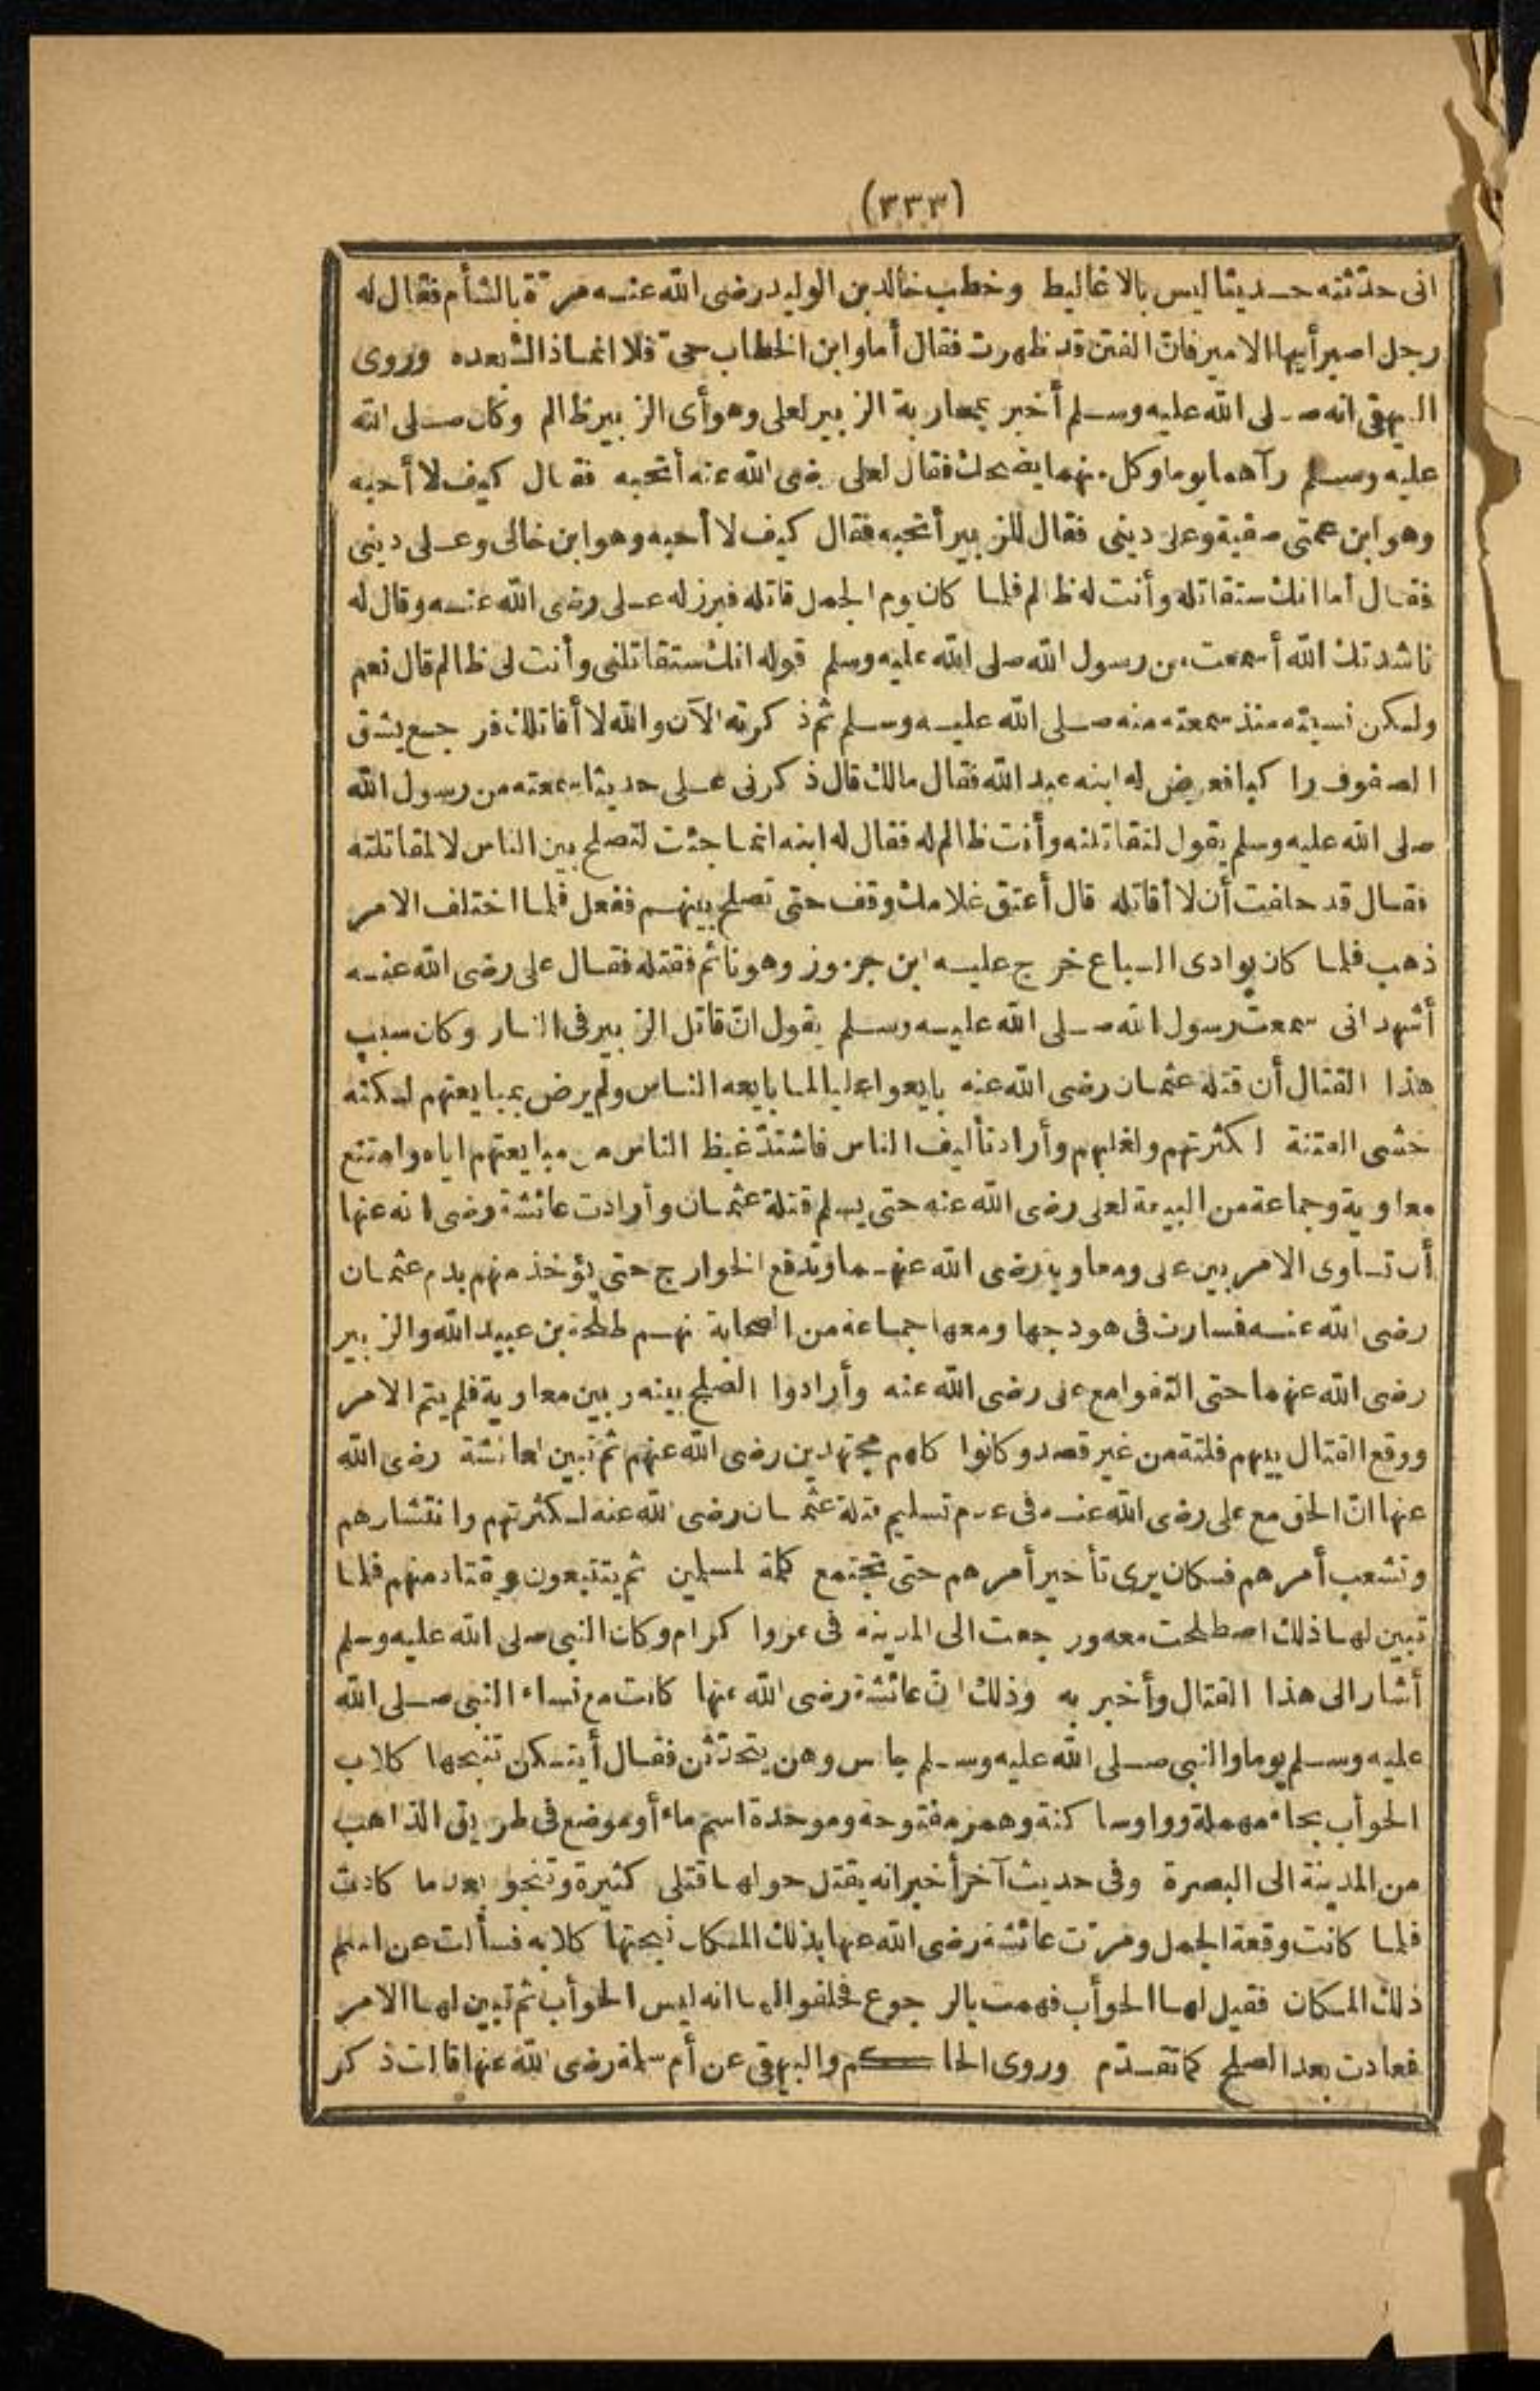 (٣٣٣)
انى حدّثته حديثا ليس بالاغاليط وخطب خالد بن الوليد رضى الله عنه مرّة بالشأم فقال له
رجل اصبر أيها الامير فانّ الفتن قد ظهرت فقال أما وابن الخطاب حىّ فلا انما ذالك بعده وروى
البيهقى انه صلى الله عليه وسلم أخبر بمحاربة الزبير لعلى وهو أى الزبير ظالم وكان صلى الله
عليه وسلم رآهما يوما وكل منهما يضحك فقال لعلى رضى الله عنه أتحبه فقال كيف لا أحبه
وهو ابن عمتى صفية وعلى دينى فقال للزبير أتحبه فقال كيف لا أحبه وهو ابن خالى وعلى دينى
فقال أما انك ستقاتله وأنت له ظالم فلما كان يوم الجمل قاتله فبرز له على رضى الله عنه وقال له
ناشدتك الله أسمعت من رسول الله صلى الله عليه وسلم قوله انك ستقاتلنى وأنت لى ظالم قال نعم
ولكن نسيته منذ سمعته منه صلى الله عليه وسلم ثم ذكرته الآن والله لا أقاتلك فرجع يشق
الصفوف راكبا فعرض له ابنه عبد الله فقال مالك قال ذكرنى على حديثا سمعته من رسول الله
صلى الله عليه وسلم يقول لتقاتلنه وأنت ظالم له فقال له ابنه انما جئت لتصلح بين الناس لا لمقاتلته
فقال قد حلفت أن لا أقاتله قال أعتق غلامك وقف حتى تصلح بينهم ففعل فلما اختلف الامر
ذهب فلما كان بوادى السباع خرج عليه ابن جرموز وهو نائم فقتله فقال على رضى الله عنه
أشهد انى سمعت رسول الله صلى الله عليه وسلم يقول انّ قاتل الزبير فى النار وكان سبب
هذا القتال أن قتلة عثمان رضى الله عنه بايعوا عليا لما بايعه الناس ولم يرض بمبايعتهم لكنه
خشى الفتنة لكثرتهم ولغلبهم وأراد تأليف الناس فاشتدّ غيظ الناس من مبايعتهم اياه وامتنع
معاوية وجماعة من البيعة لعلى رضى الله عنه حتى يسلم قتلة عثمان وأرادت عائشة رضى الله عنها
أن تساوى الامر بين على ومعاوية رضى الله عنهما وتدفع الخوارج حتى يؤخذ منهم بدم عثمان
رضى الله عنه فسارت فى هودجها ومعها جماعة من الصحابة منهم طلحة بن عبيد الله والزبير
رضى الله عنهما حتى التقوا مع على رضى الله عنه وأرادوا الصلح بينه وبين معاوية فلم يتم الامر
ووقع القتال بينهم فلتة من غير قصد وكانوا كلهم مجتهدين رضى الله عنهم ثم تبين لعائشة رضى الله
عنها انّ الحق مع على رضى الله عنه فى عدم تسليم قتلة عثمان رضى الله عنه لكثرتهم وانتشارهم
وتشعب أمرهم فكان يرى تأخير أمرهم حتى تجتمع كلمة المسلمين ثم يتتبعون ويقتاد منهم فلما
تبين لها ذلك اصطلحت معه ورجعت الى المدينة فى عز واكرام وكان النبى صلى الله عليه وسلم
أشار الى هذا القتال وأخبر به وذلك انّ عائشة رضى الله عنها كانت مع نساء النبى صلى الله
عليه وسلم يوما والنبى صلى الله عليه وسلم جالس وهن يتحدّثن فقال أيتكن تنبحها كلاب
الحوأب بحاء مهملة وواو ساكنة وهمز مفتوحة وموحدة اسم ماء أو موضع فى طريق الذاهب
من المدينة الى البصرة وفى حديث آخر أخبر انه يقتل حولها قتلى كثيرة وتنجو بعدما كادت
فلما كانت وقعة الجمل ومرّت عائشة رضى الله عنها بذلك المكان نبحتها كلابه فسألت عن اسم
ذلك المكان فقيل لها الحوأب فهمت بالرجوع فحلفوا لها انه ليس الحوأب ثم تبين لها الامر
فعادت بعد الصلح كما تقدّم وروى الحاكم والبيهقى عن أم سلمة رضى الله عنها قالت ذكر